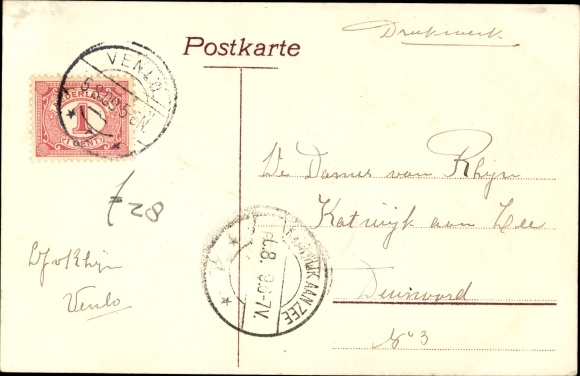 Postkarte
Drukwerk
VENLO
NEDERLAND
1
CENT
De Dames van Rhyn
Katwijk aan Zee
Duinoord
No 3
f 28
v Rhyn
Venlo
KATWIJK AAN ZEE
6.8. 6-7V.